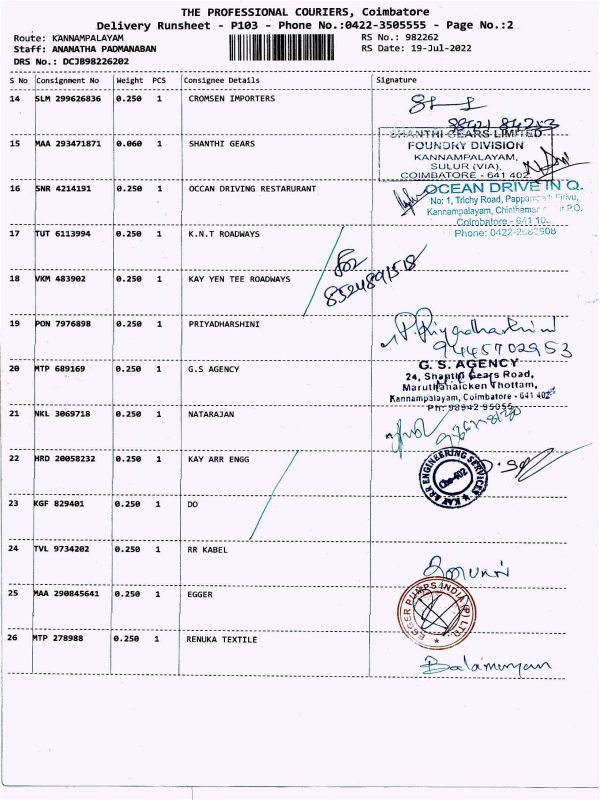 THE PROFESSIONAL COURIERS, Coimbatore
Delivery Runsheet - P103 - Phone No.:0422-3505555 - Page No.:2
Route: KANNAMPALAYAM RS No.: 982262
Staff: ANANATHA PADMANABAN RS Date: 19-Jul-2022
DRS No.: DCJB98226202
S No Consignment No Weight PCS Consignee Details Signature
14 SLM 299626836 0.250 1 CROMSEN IMPORTERS
98421 84253
15 MAA 293471871 0.060 1 SHANTHI GEARS
SHANTHI GEARS LIMITED
FOUNDRY DIVISION
KANNAMPALAYAM,
SULUR (VIA),
COIMBATORE - 641 402
16 SNR 4214191 0.250 1 OCCAN DRIVING RESTARURANT
OCEAN DRIVE IN
No: 1, Trichy Road,
Kannampalayam,
Coimbatore - 641
Phone:
17 TUT 6113994 0.250 1 K.N.T ROADWAYS
18 VKM 483902 0.250 1 KAY YEN TEE ROADWAYS
19 PON 7976898 0.250 1 PRIYADHARSHINI
P. Priyadharshini
9445702953
20 MTP 689169 0.250 1 G.S AGENCY
G. S. AGENCY
24, Shanthi Gears Road,
Maruthahaicken Thottam,
Kannampalayam, Coimbatore - 641 402
Ph: 98942 95055
21 NKL 3069718 0.250 1 NATARAJAN
22 HRD 20058232 0.250 1 KAY ARR ENGG
KAY ARR ENGINEERING SERVICES
Cbe-402
23 KGF 829401 0.250 1 DO
24 TVL 9734202 0.250 1 RR KABEL
25 MAA 290845641 0.250 1 EGGER
EGGER PUMPS INDIA (P) LTD.
26 MTP 278988 0.250 1 RENUKA TEXTILE
Balamurugan